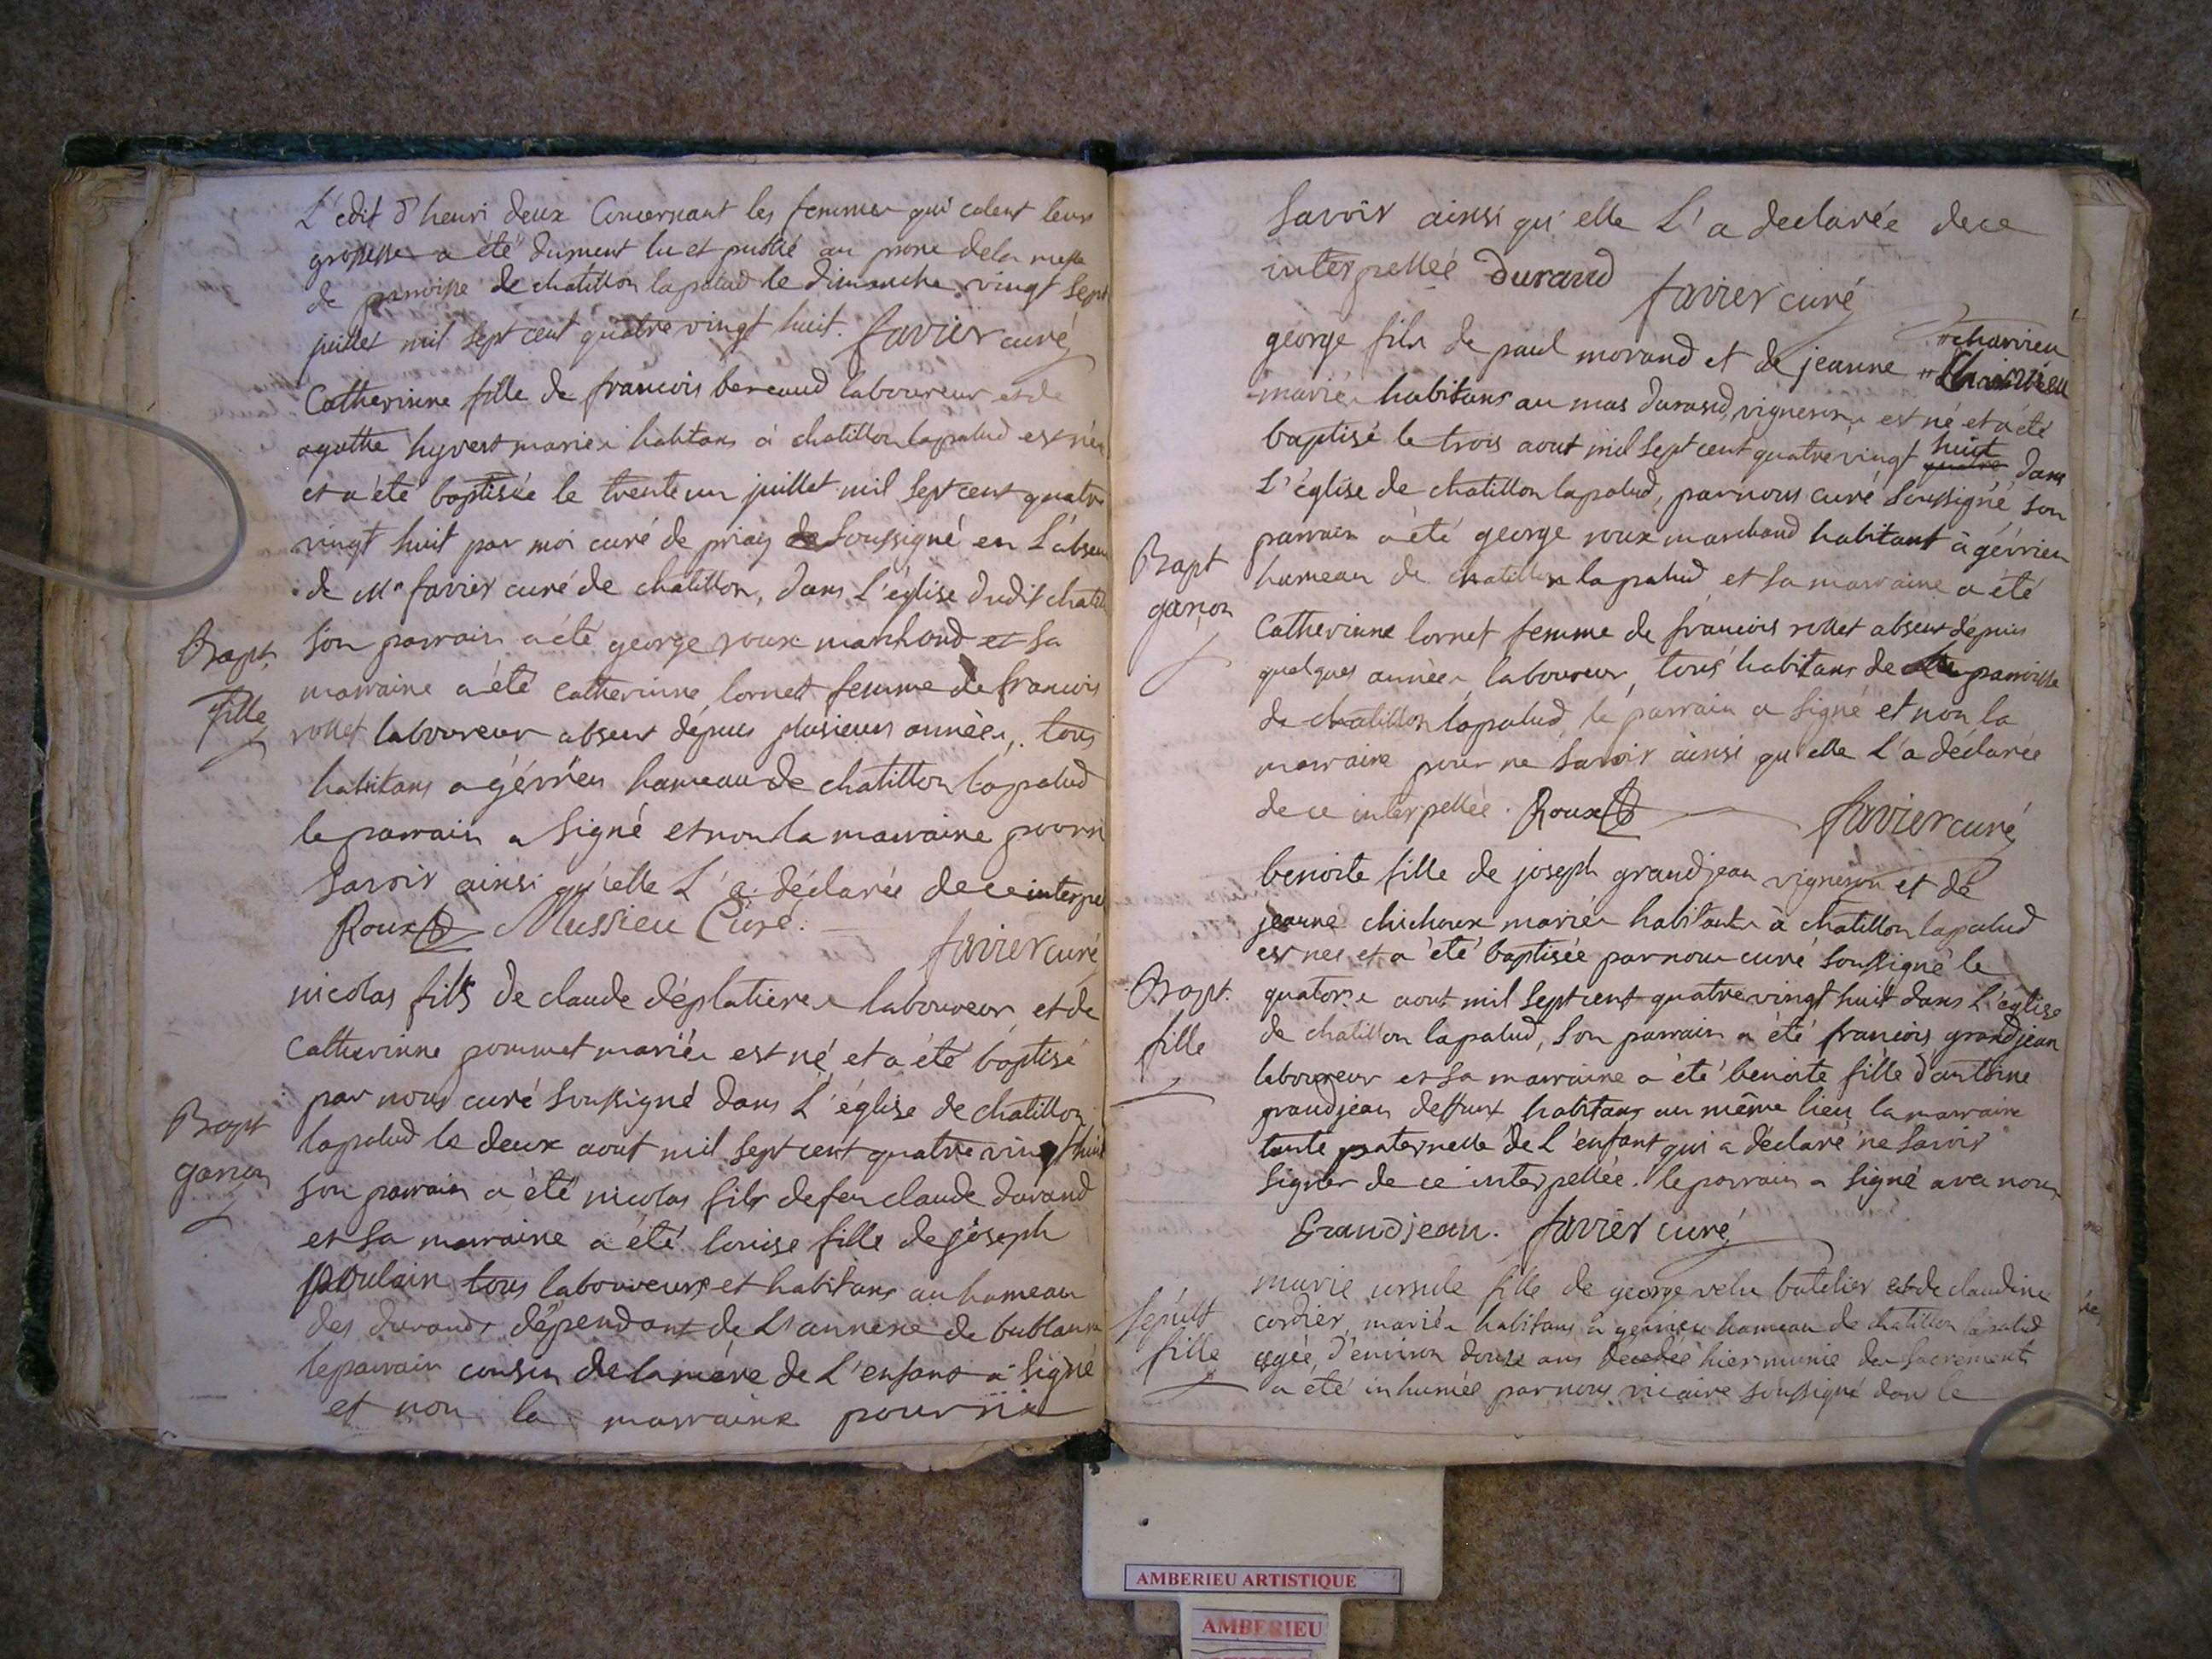 L'edit d'henri deux Concernant les femmes qui celent leurs
grossesse a été dument lu et publié au prone dela messe
de paroisse de chatillon lapalud le dimanche vingt sept
juillet mil sept cent quatre vingt huit. favier curé
Catherinne fille de francois bereaud laboureur et de
agathe hyvert mariés habitans à chatillon lapalud est née
et a été baptisée le trente un juillet mil sept cent quatre
vingt huit par moi curé de priay soussigné en L'absen
de Mr favier curé de chatillon, dans L'église dudit chatill
Bapt.
fille
son parrain a été george roux marchand et sa
marraine a été catherinne lornet femme de francois
rollet laboureur absent depuis plusieurs années, tous
habitans a gévrieu hameau de chatillon lapalud
le parrain a signé et non la marraine pour n
savoir ainsi qu'elle L'a déclarée de ce interpe
Roux Mussieu Curé.
favier curé
nicolas fils de claude déplatieres laboureur et de
Catherinne pommet mariés est né et a été baptisé
par nous curé soussigné dans L'église de chatillon
Bapt
garçon
lapalud le deux aout mil sept cent quatre vingt huit
son parrain a été nicolas fils de feu claude durand
et sa marraine a été louise fille de joseph
poulain tous laboureurs et habitans au hameau
des durands dépendant de L'annexe de bublanne
le parrain cousin de la mére de L'enfant a signé
et non la marraine pour ne
savoir ainsi qu'elle L'a declarée dece
interpellée durand favier curé
george fils de paul morand et de jeanne # charrieu
mariés habitans au mas durand, vignerons est né et a été
baptisé le trois aout mil sept cent quatre vingt huit dans
L'église de chatillon lapalud, par nous curé soussigné son
Bapt
garçon
parrain a été george roux marchand habitant à gévrieu
hameau de chatillon lapalud et sa marraine a été
Catherinne lornet femme de francois rollet absent depuis
quelques années laboureur, tous habitans de paroisse
de chatillon lapalud le parrain a signé et non la
marraine pour ne savoir ainsi qu'elle L'a déclarée
de ce interpellée. Roux favier curé
benoite fille de joseph grandjean vigneron et de
jeanne chichoux mariés habitants à chatillon lapalud
est nee et a été baptisée par nous curé soussigné le
Bapt.
fille
quatorze aout mil sept cent quatre vingt huit dans L'église
de chatillon lapalud, son parrain a été francois grandjean
laboureur et sa marraine a été benoite fille d'antoine
grandjean deffunt habitans au même lieu la marraine
tante paternelle de L'enfant qui a déclaré ne savoir
signer de ce interpellée. le parrain a signé avec nous
Grandjean. favier curé
marie ursule fille de george velu batelier et de claudine
sepult
fille
cordier mariés habitans a gevrieu hameau de chatillon lapalud
agée d'environ douze ans decedée hier munie des sacrements
a été inhumée par nous vicaire soussigné dans le
AMBERIEU ARTISTIQUE
AMBERIEU